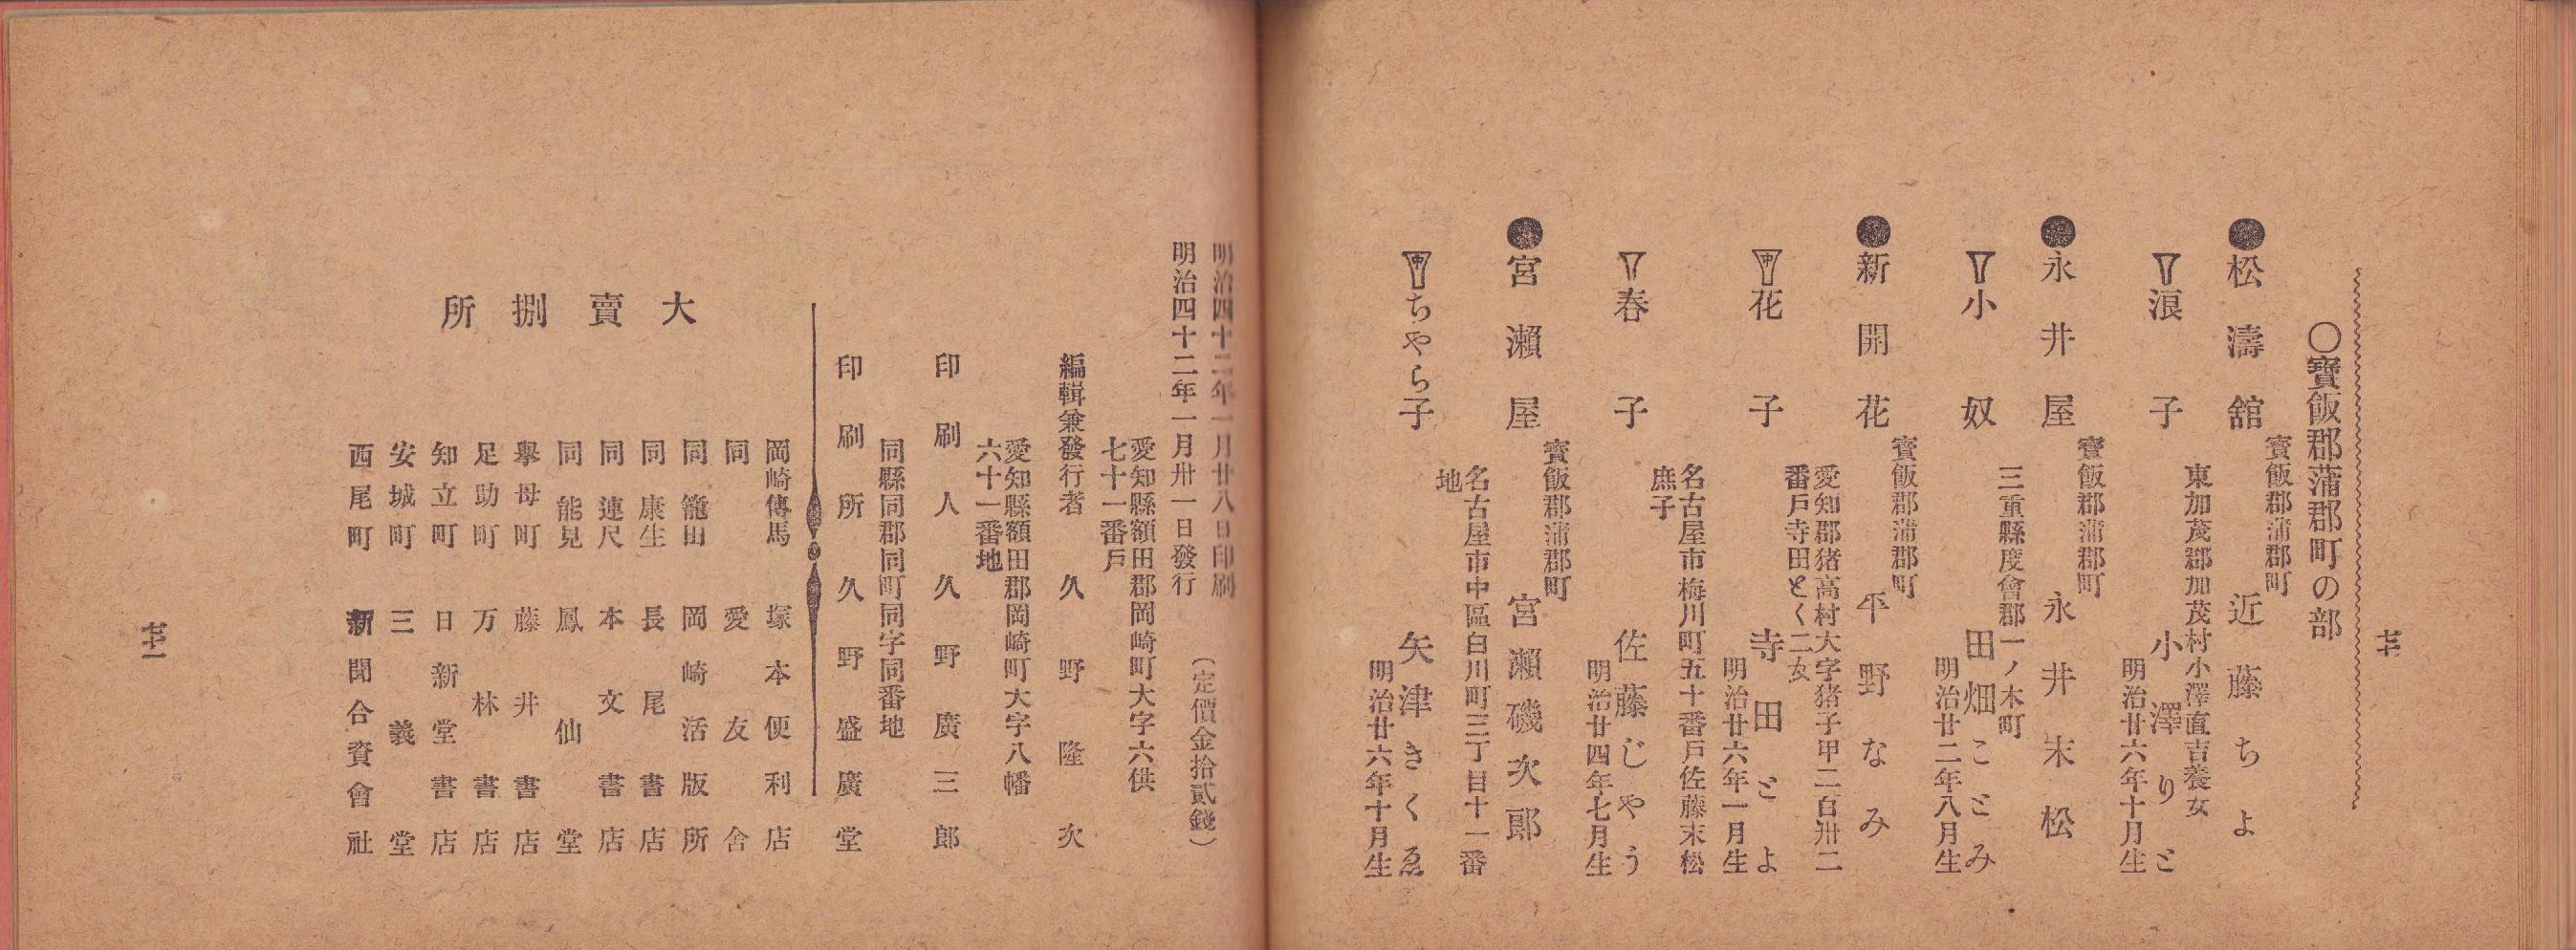 〇寶飯郡蒲郡町の部
●松濤舘
寶飯郡蒲郡町
近藤ちよ
浪子
東加茂郡加茂村小澤直吉養女
小澤りと
明治廿六年十月生
●永井屋
寶飯郡蒲郡町
永井末松
小奴
三重縣度會郡一ノ木町
田畑ことみ
明治廿二年八月生
●新開花
寶飯郡蒲郡町
平野なみ
花子
愛知郡猪高村大字猪子甲二百卅二
番戸寺田とく二女
寺田とよ
明治廿六年一月生
春子
名古屋市梅川町五十番戸佐藤末松
庶子
佐藤じやう
明治廿四年七月生
●宮瀬屋
寶飯郡蒲郡町
宮瀬磯次郎
ちやら子
名古屋市中區白川町三丁目十一番
地
矢津きくゑ
明治廿六年十月生
七十
明治四十二年一月廿八日印刷
明治四十二年一月卅一日發行
（定價金拾貳錢）
愛知縣額田郡岡崎町大字六供
七十一番戸
編輯兼發行者 久野隆次
愛知縣額田郡岡崎町大字八幡
六十一番地
印刷人 久野廣三郎
同縣同郡同町同字同番地
印刷所 久野盛廣堂
大賣捌所
岡崎傳馬 塚本便利店
同 愛友舎
同籠田 岡崎活版所
同康生 長尾書店
同連尺 本文書店
同能見 鳳仙堂
擧母町 藤井書店
足助町 万林書店
知立町 日新堂書店
安城町 三義堂
西尾町 新聞合資會社
七十一